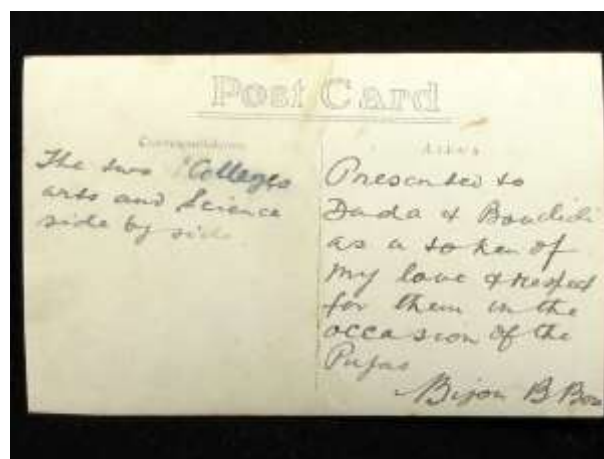 Post Card
Correspondence
Address
The two Colleges
arts and Science
side by side.
Presented to
Dada & Boudidi
as a token of
my love & respect
for them in the
occasion of the
Pujas
Bijon B